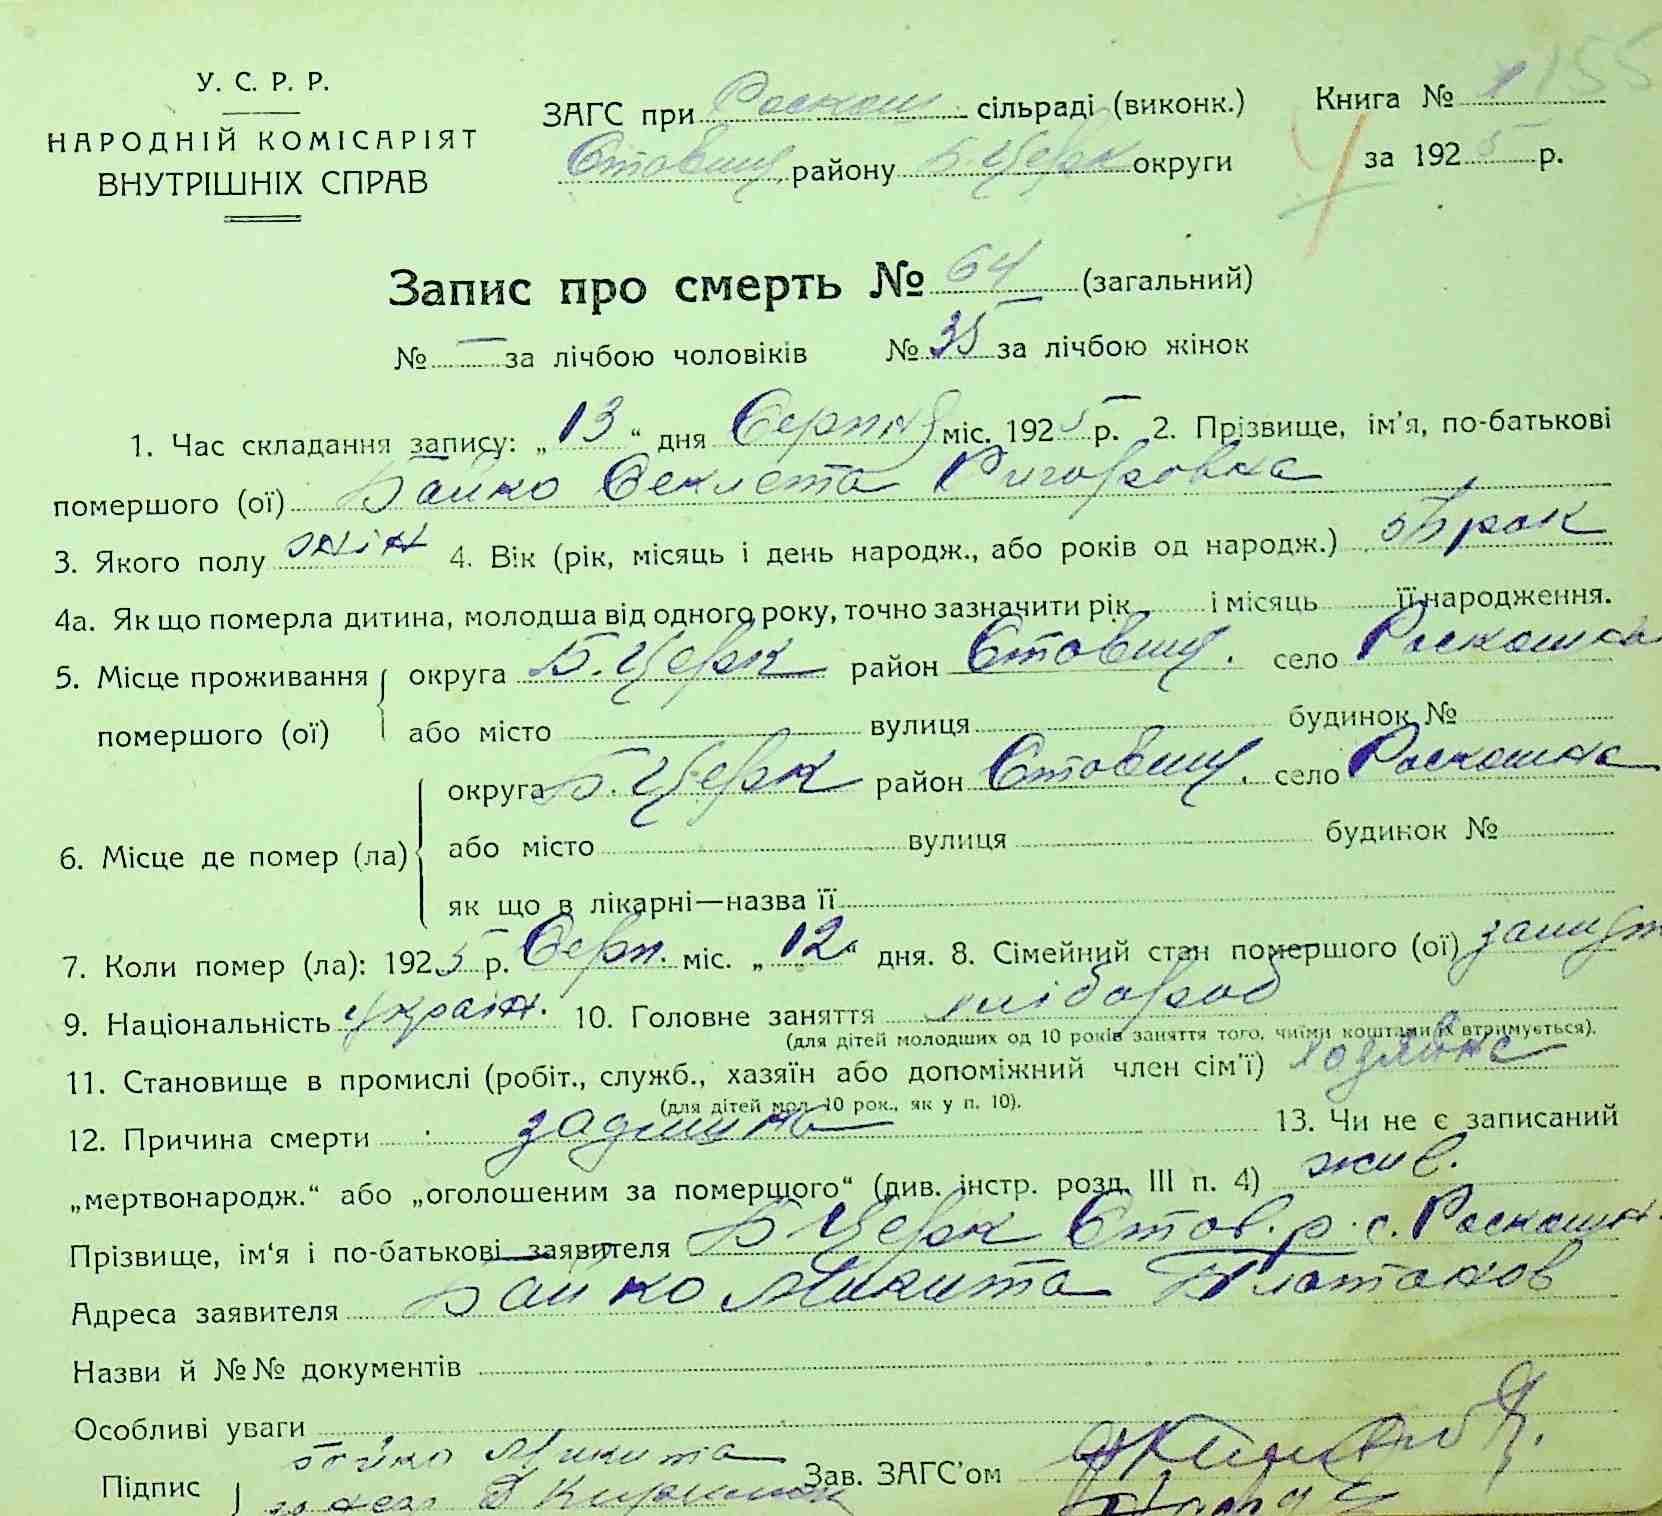 155
У. С. Р. Р.
НАРОДНІЙ КОМІСАРІЯТ
ВНУТРІШНІХ СПРАВ
ЗАГС при Роскош. сільраді (виконк.) Книга № 1
Ставищ. району Б. Церк округи за 1925 р.
Запис про смерть № 64 (загальний)
№ — за лічбою чоловіків № 35 за лічбою жінок
1. Час складання запису: „13“ дня Серпня міс. 1925 р. 2. Прізвище, ім'я, по-батькові
помершого (ої) Бойко Секлета Григоровна
3. Якого полу жін 4. Вік (рік, місяць і день народж., або років од народж.) рок
4а. Як що померла дитина, молодша від одного року, точно зазначити рік і місяць її народження.
5. Місце проживання округа Б. Церк район Ставищ. село Роскошна
помершого (ої) або місто вулиця будинок №
округа Б. Церк район Ставищ. село Роскошна
6. Місце де помер (ла) або місто вулиця будинок №
як що в лікарні—назва її
7. Коли помер (ла): 1925 р. Серп. міс. „12“ дня. 8. Сімейний стан помершого (ої) замуж
9. Національність україн. 10. Головне заняття хлібороб
(для дітей молодших од 10 років заняття того, чиїми коштами їх втримується).
11. Становище в промислі (робіт., служб., хазяїн або допоміжний член сім'ї) хозяйка
(для дітей мол. 10 рок., як у п. 10).
12. Причина смерти задишка 13. Чи не є записаний
„мертвонародж.“ або „оголошеним за померщого“ (див. інстр. розд. III п. 4)
Прізвище, ім'я і по-батькові заявителя Б Церк Став. р. с. Роскошн.
Адреса заявителя Бойко Микита Платонов
Назви й №№ документів
Особливі уваги
Підпис Бойко Микита Зав. ЗАГС'ом